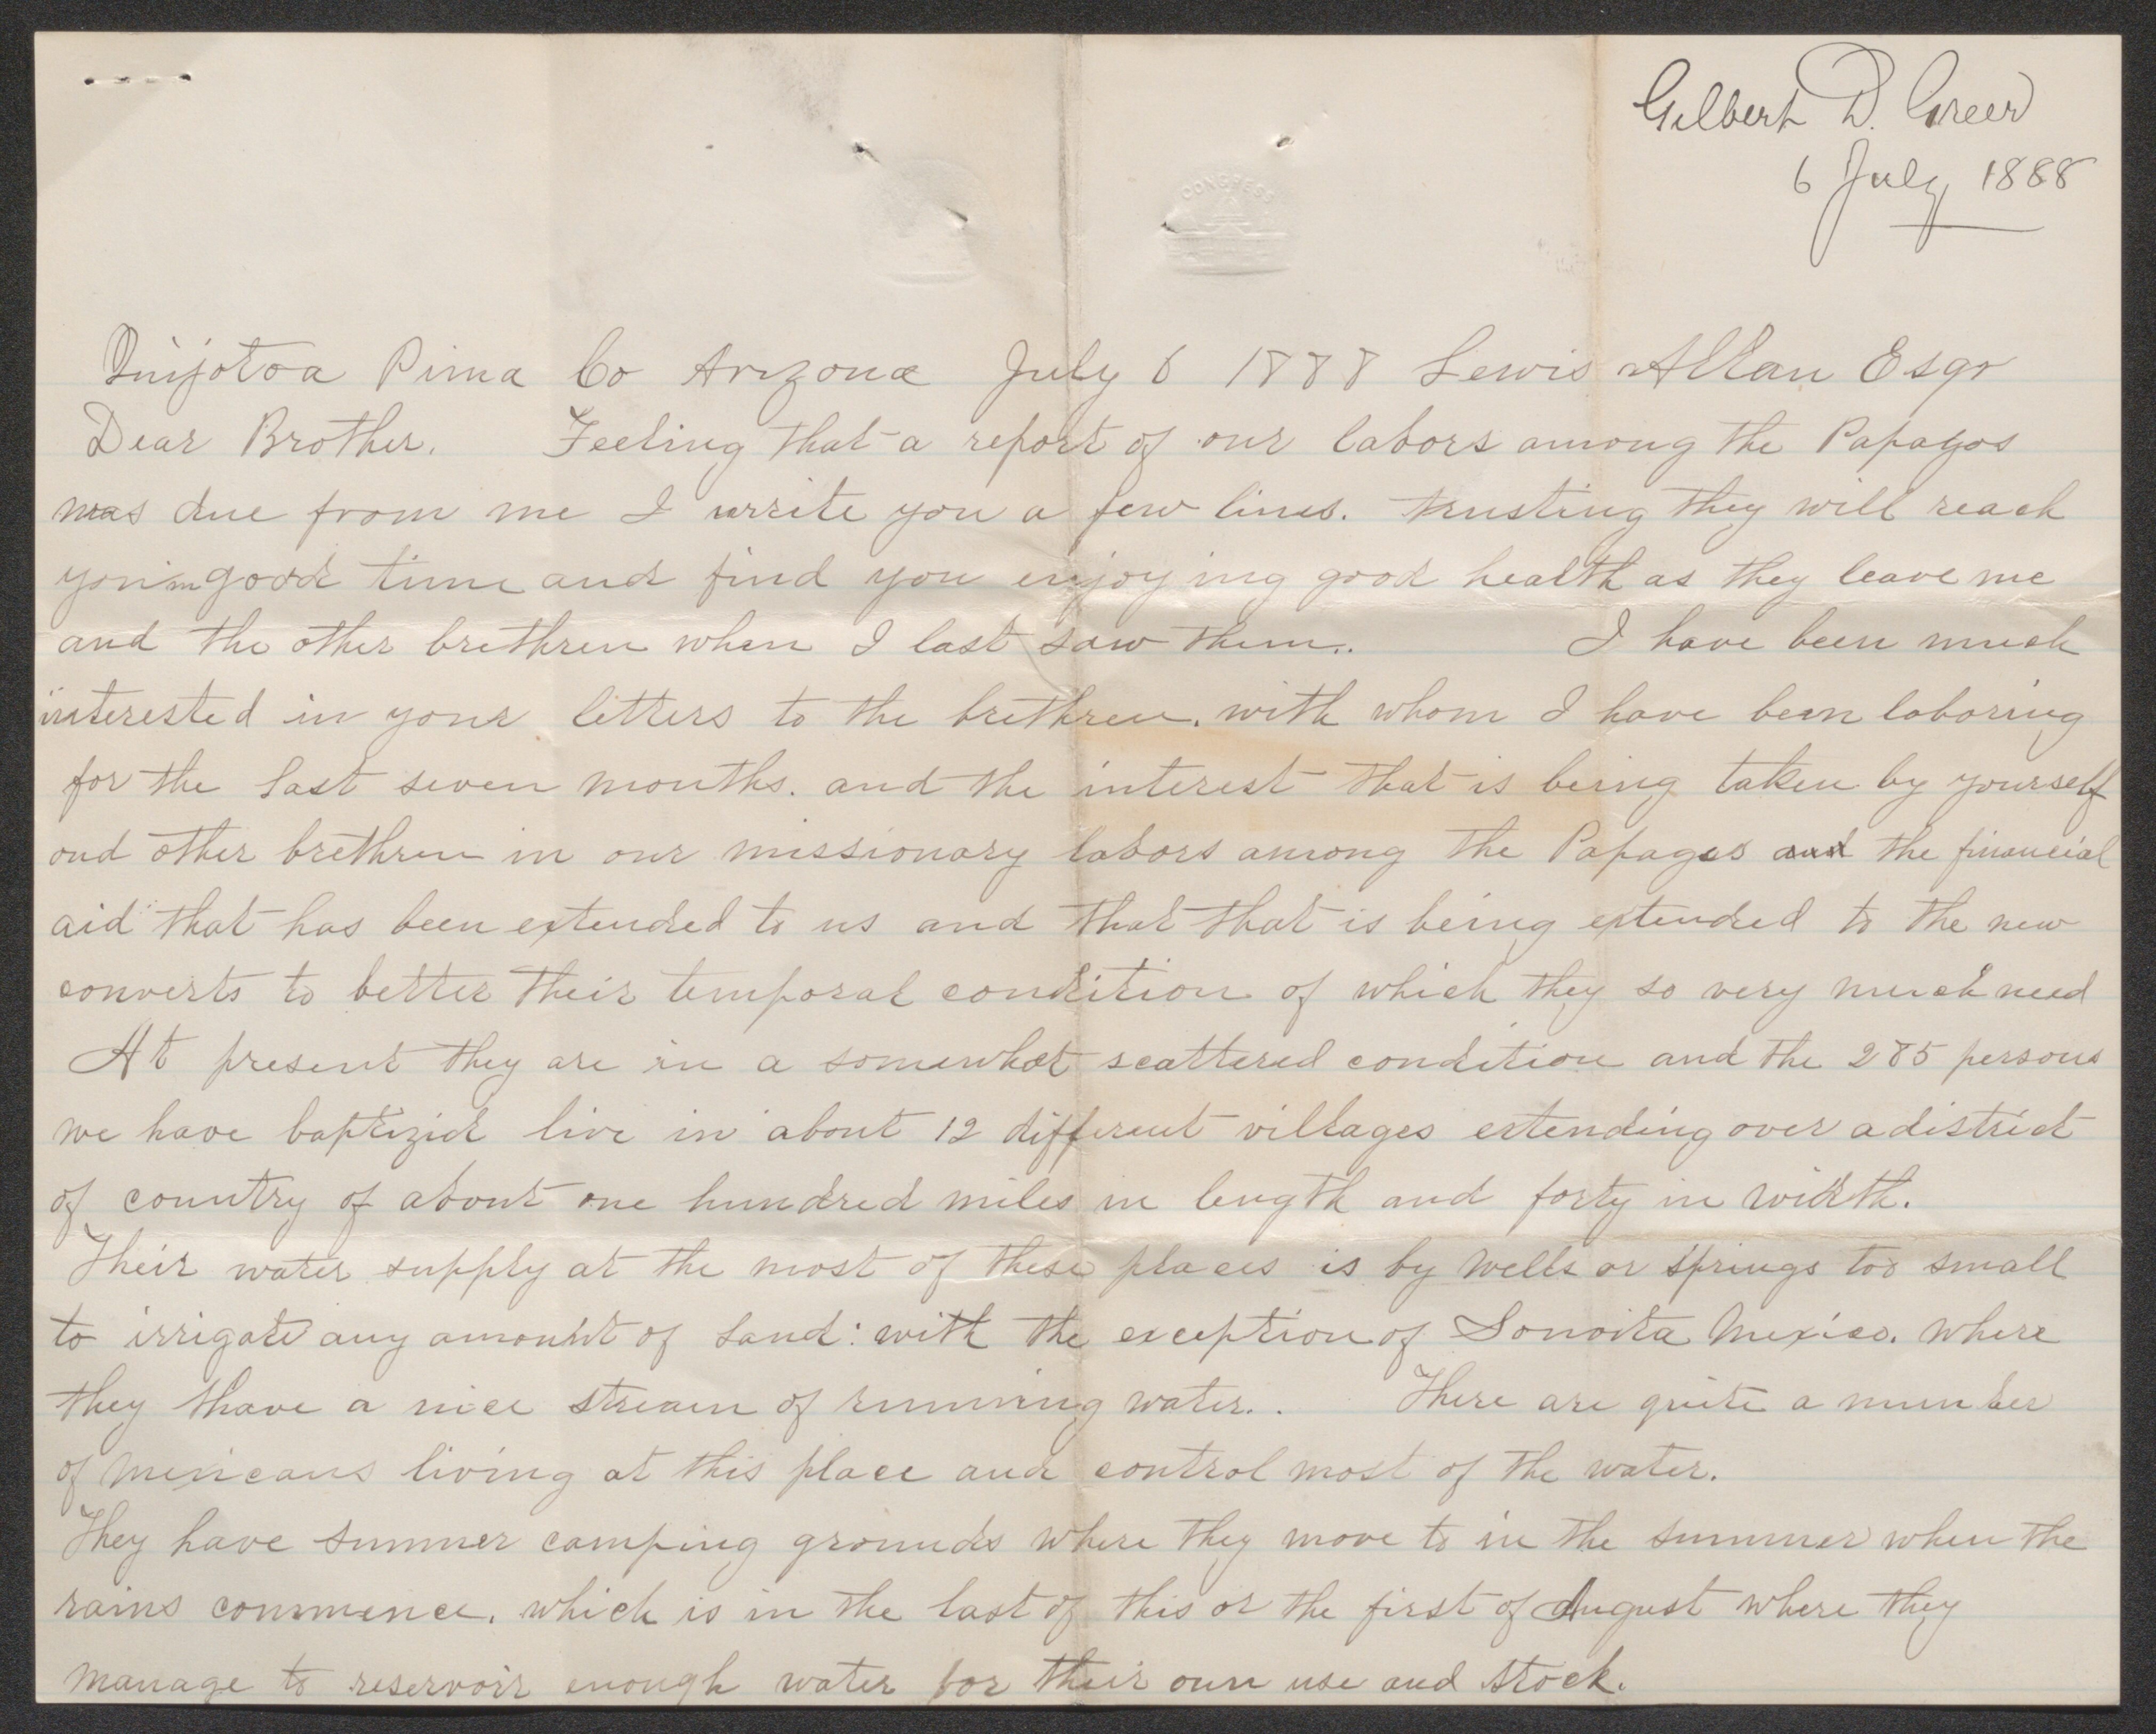 Gilbert D. Greer
6 July 1888
CONGRESS
Quijotoa Pima Co Arizona July 6 1888 Lewis Allan Esqr
Dear Brother. Feeling that a report of our labors among the Papagos
was due from me I write you a few lines. trusting they will reach
you in good time and find you enjoying good health as they leave me
and the other brethren when I last saw them.. I have been much
interested in your letters to the brethren. with whom I have been laboring
for the last seven months. and the interest that is being taken by yourself
and other brethren in our missionary labors among the Papagos and the financial
aid that has been extended to us and that that is being extended to the new
converts to better their temporal condition of which they so very much need
At present they are in a somewhat scattered condition and the 285 persons
we have baptizid live in about 12 different villages extending over a district
of country of about one hundred miles in length and forty in width.
Their water supply at the most of these places is by wells or springs too small
to irrigate any amount of land: with the exception of Sonoita Mexico. where
they have a nice stream of running water.. There are quite a number
of Mexicans living at this place and control most of the water.
They have summer camping grounds where they move to in the summer when the
rains commence. which is in the last of this or the first of August where they
manage to reservoir enough water for their own use and stock.